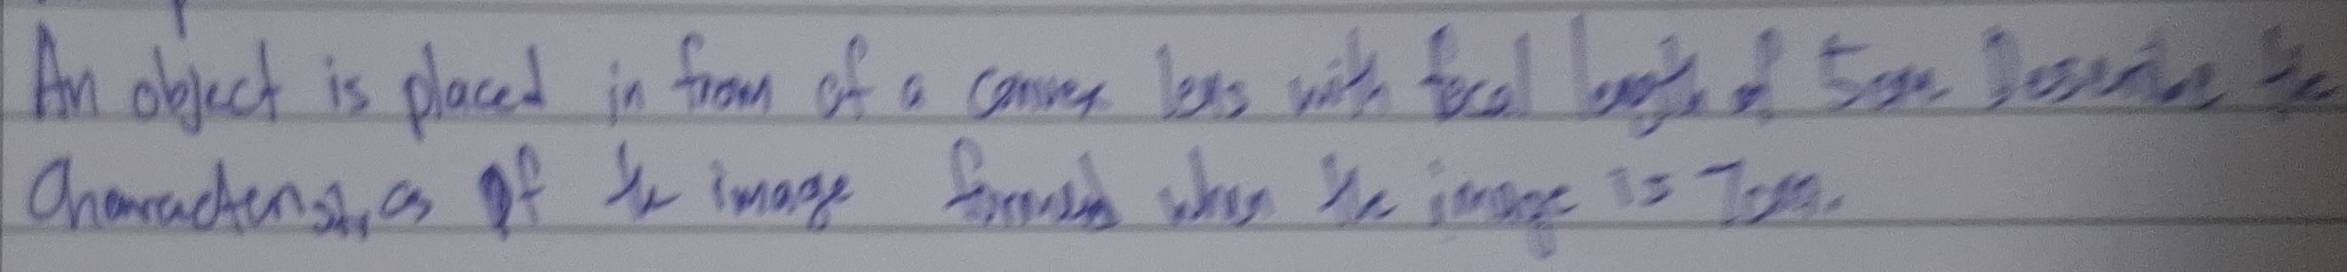 An object is placed in from of a convex lens with focal length of 5cm. Describe the
Characteristics of the image formed when the image is 7cm.